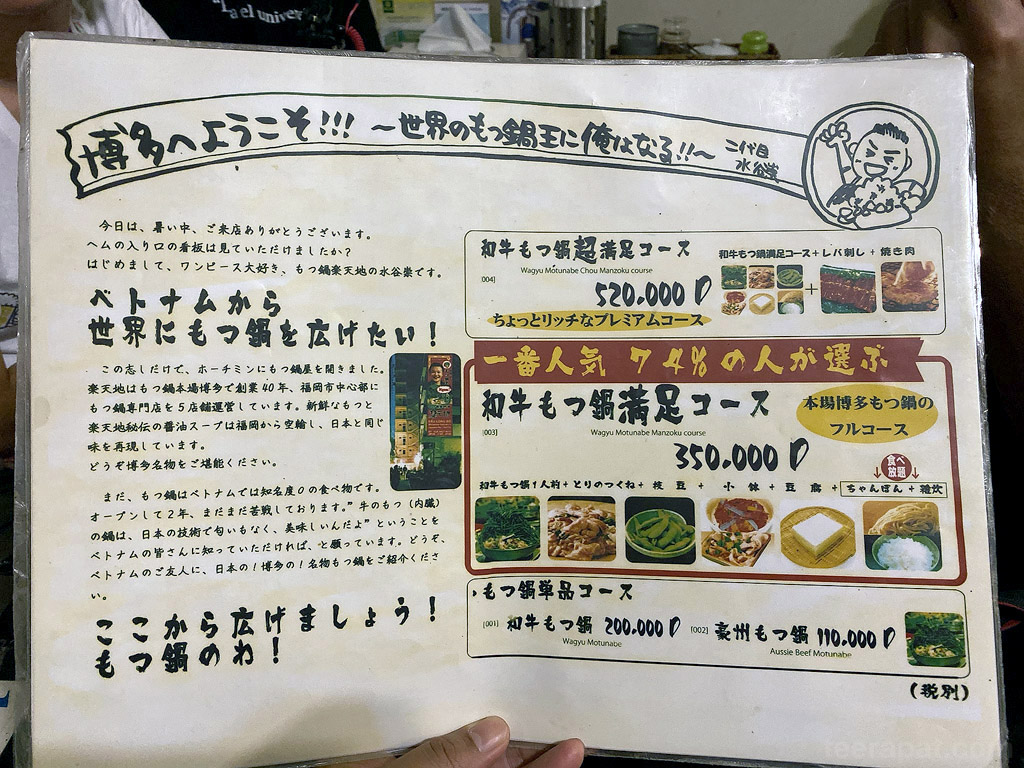 "La el univer
博多へようこそ!!! ～世界のもつ鍋王に俺はなる!!～
二代目
水谷崇
今日は、暑い中、ご来店ありがとうございます。
ヘムの入り口の看板は見ていただけましたか?
はじめまして、ワンピース大好き、もつ鍋楽天地の水谷崇です。
ベトナムから
世界にもつ鍋を広げたい！
この志しだけで、ホーチミンにもつ鍋屋を開きました。
楽天地はもつ鍋本場博多で創業40年、福岡市中心部に
もつ鍋専門店を5店舗運営しています。新鮮なもつと
楽天地秘伝の醤油スープは福岡から空輸し、日本と同じ
味を再現しています。
どうぞ博多名物をご堪能ください。
まだ、もつ鍋はベトナムでは知名度0の食べ物です。
オープンして2年、まだまだ苦戦しております。"牛のもつ（内臓）
の鍋は、日本の技術で匂いもなく、美味しいんだよ"ということを
ベトナムの皆さんに知っていただければ、と願っています。どうぞ、
ベトナムのご友人に、日本の！博多の！名物もつ鍋をご紹介くださ
い。
ここから広げましょう！
もつ鍋のわ！
和牛もつ鍋超満足コース
Wagyu Motunabe Chou Manzoku course
[004]
520.000 D
ちょっとリッチなプレミアムコース
和牛もつ鍋満足コース+レバ刺し+焼き肉
+
一番人気 74%の人が選ぶ
和牛もつ鍋満足コース
[003]
Wagyu Motunabe Manzoku course
350.000 D
本場博多もつ鍋の
フルコース
食べ
放題
和牛もつ鍋1人前+とりのつくね+枝豆+小鉢+豆腐+ちゃんぽん+雑炊
もつ鍋単品コース
[001] 和牛もつ鍋 200.000 D
Wagyu Motunabe
[002] 豪州もつ鍋 110.000 D
Aussie Beef Motunabe
(税別)
teerapat.com